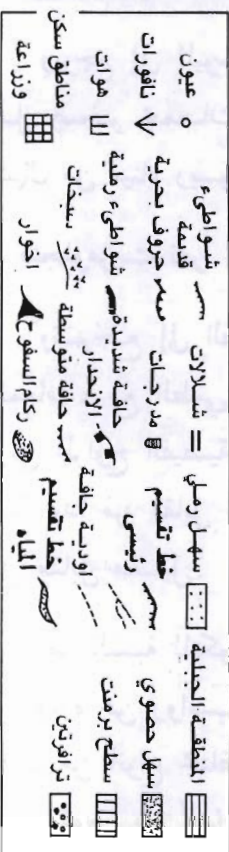 المنطقة الجبلية
سهل حصوي
سطح برمنت
ترافرتين
سهل رملي
خط تقسيم
رئيسي
اودية حافة
خط تقسيم
المياه
شلالات
مدرجات
حافة شديدة
الانحدار
حافة متوسطة
ركام السفوح
شواطىء
قديمة
جروف بحرية
شواطىء رملية
سبخات
اخوار
عيون
نافورات
هوات
مناطق سكن
وزراعة